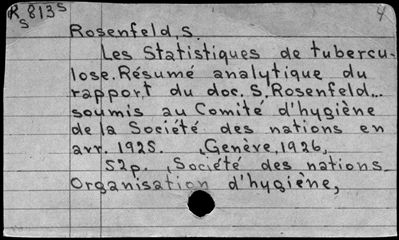 R 813 s
s
4
Rosenfeld, S.
Les Statistiques de tubercu-
lose. Résumé analytique du
rapport du doc. S. Rosenfeld...
soumis au Comité d'hygiène
de la Société des nations en
avr. 1925. Genève, 1926,
52p. Société des nations.
Organisation d'hygiène,